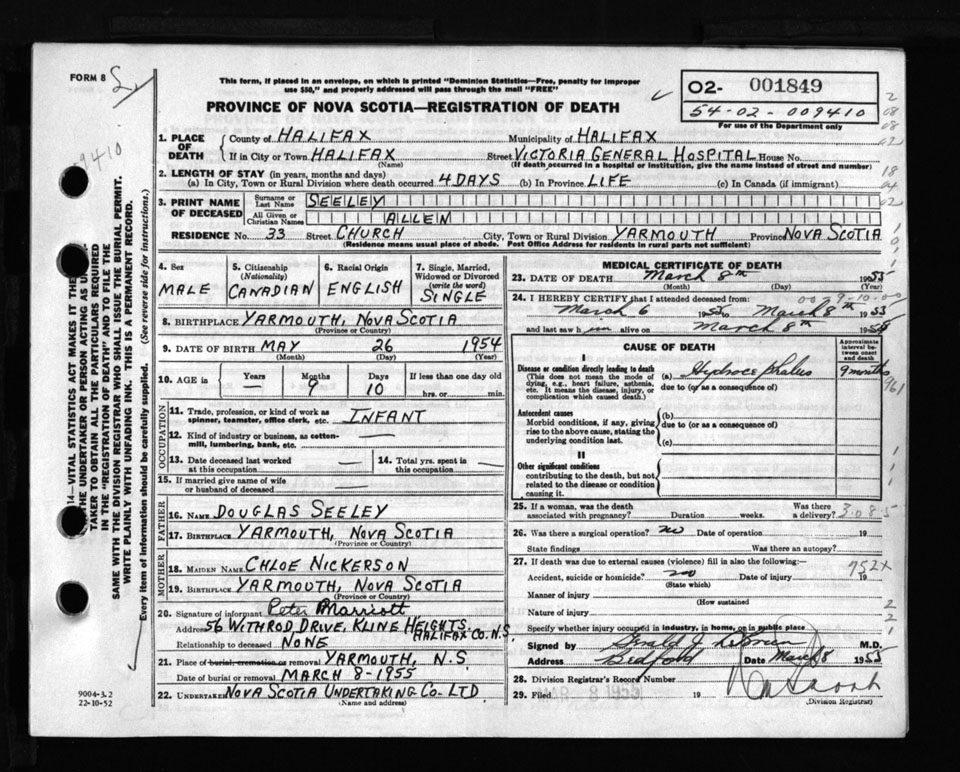 FORM 8
This form, if placed in an envelope, on which is printed "Dominion Statistics—Free, penalty for improper
use $50," and properly addressed will pass through the mail "FREE"
PROVINCE OF NOVA SCOTIA—REGISTRATION OF DEATH
O2- 001849
54-02-009410
For use of the Department only
9410
1. PLACE OF DEATH { County of HALIFAX Municipality of HALIFAX
If in City or Town HALIFAX (Name) Street VICTORIA GENERAL HOSPITAL House No.
(If death occurred in a hospital or institution, give the name instead of street and number)
2. LENGTH OF STAY (in years, months and days)
(a) In City, Town or Rural Division where death occurred 4 DAYS (b) In Province LIFE (c) In Canada (if immigrant)
3. PRINT NAME OF DECEASED { Surname or Last Name SEELEY
All Given or Christian Names ALLEN
RESIDENCE No. 33 Street CHURCH City, Town or Rural Division YARMOUTH Province NOVA SCOTIA
(Residence means usual place of abode. Post Office Address for residents in rural parts not sufficient)
4. Sex MALE
5. Citizenship (Nationality) CANADIAN
6. Racial Origin ENGLISH
7. Single, Married, Widowed or Divorced (write the word) SINGLE
8. BIRTHPLACE YARMOUTH, NOVA SCOTIA
(Province or Country)
9. DATE OF BIRTH MAY 26 1954
(Month) (Day) (Year)
10. AGE in { Years — Months 9 Days 10 If less than one day old
hrs. or min.
OCCUPATION
11. Trade, profession, or kind of work as spinner, teamster, office clerk, etc. INFANT
12. Kind of industry or business, as cotton-mill, lumbering, bank, etc. —
13. Date deceased last worked at this occupation —
14. Total yrs. spent in this occupation —
15. If married give name of wife or husband of deceased —
FATHER
16. NAME DOUGLAS SEELEY
17. BIRTHPLACE YARMOUTH, NOVA SCOTIA
(Province or Country)
MOTHER
18. MAIDEN NAME CHLOE NICKERSON
19. BIRTHPLACE YARMOUTH, NOVA SCOTIA
(Province or Country)
20. Signature of informant Peter Marriott
Address 56 WITHROD DRIVE, KLINE HEIGHTS, HALIFAX CO. N.S.
Relationship to deceased NONE
21. Place of burial, cremation or removal YARMOUTH, N.S
Date of burial or removal MARCH 8-1955
22. UNDERTAKER NOVA SCOTIA UNDERTAKING CO. LTD
(Name and address)
MEDICAL CERTIFICATE OF DEATH
23. DATE OF DEATH March 8th 1955
(Month) (Day) (Year)
24. I HEREBY CERTIFY that I attended deceased from:
March 6 1955 to March 8th 1955
and last saw him alive on March 8th 1955
CAUSE OF DEATH
Approximate interval between onset and death
I
Disease or condition directly leading to death
(This does not mean the mode of dying, e.g., heart failure, asthenia, etc. It means the disease, injury, or complication which caused death.)
(a) Hydrocephalus 9 months
due to (or as a consequence of)
Antecedent causes
Morbid conditions, if any, giving rise to the above cause, stating the underlying condition last.
(b)
due to (or as a consequence of)
(c)
II
Other significant conditions
contributing to the death, but not related to the disease or condition causing it.
25. If a woman, was the death associated with pregnancy? Duration weeks. Was there a delivery? 3085
26. Was there a surgical operation? no Date of operation 19
State findings Was there an autopsy?
27. If death was due to external causes (violence) fill in also the following:— 752X
Accident, suicide or homicide? no Date of injury 19
(State which)
Manner of injury
(How sustained)
Nature of injury
Specify whether injury occurred in industry, in home, or in public place
Signed by M.D.
Address Bedford Date March 8 1955
28. Division Registrar's Record Number
29. Filed MAR 8 1955 19
(Division Registrar)
9004-3.2
22-10-52
VITAL STATISTICS ACT MAKES IT THE
THE UNDERTAKER OR PERSON ACTING AS
TAKER TO OBTAIN ALL THE PARTICULARS REQUIRED
IN THE "REGISTRATION OF DEATH" AND TO FILE THE
SAME WITH THE DIVISION REGISTRAR WHO SHALL ISSUE THE BURIAL PERMIT.
WRITE PLAINLY WITH UNFADING INK. THIS IS A PERMANENT RECORD.
Every item of information should be carefully supplied. (See reverse side for instructions.)